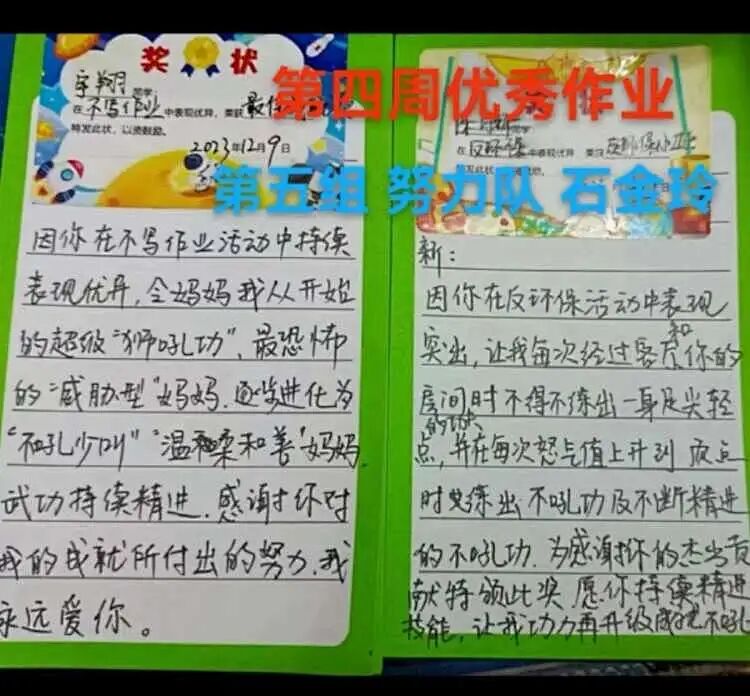 第四周优秀作业
第五组 努力队 石金玲
奖状
宇翔 同学:
在 不写作业 中表现优异，荣获 最佳
特发此状，以资鼓励。
2023年12月9日
因你在不写作业活动中持续
表现优异，令妈妈我从开始
的超级“狮吼功”、最恐怖
的“威胁型”妈妈，逐步进化为
“不吼少叫”“温和柔和善”妈妈，
武功持续精进，感谢你对
我的成就所付出的努力，我
永远爱你。
同学:
在 反环保 中表现优异 荣获
特发此状，
新：
因你在反环保活动中表现
突出，让我每次经过客厅和你的
房间时不得不练出一身足尖轻
点的功夫，并在每次怒气值上升到 点
时 练出不吼功及不断精进
的不吼功，为感谢你的杰出贡
献特颁此奖 愿你持续精进
技能，让我功力再升级成 不吼